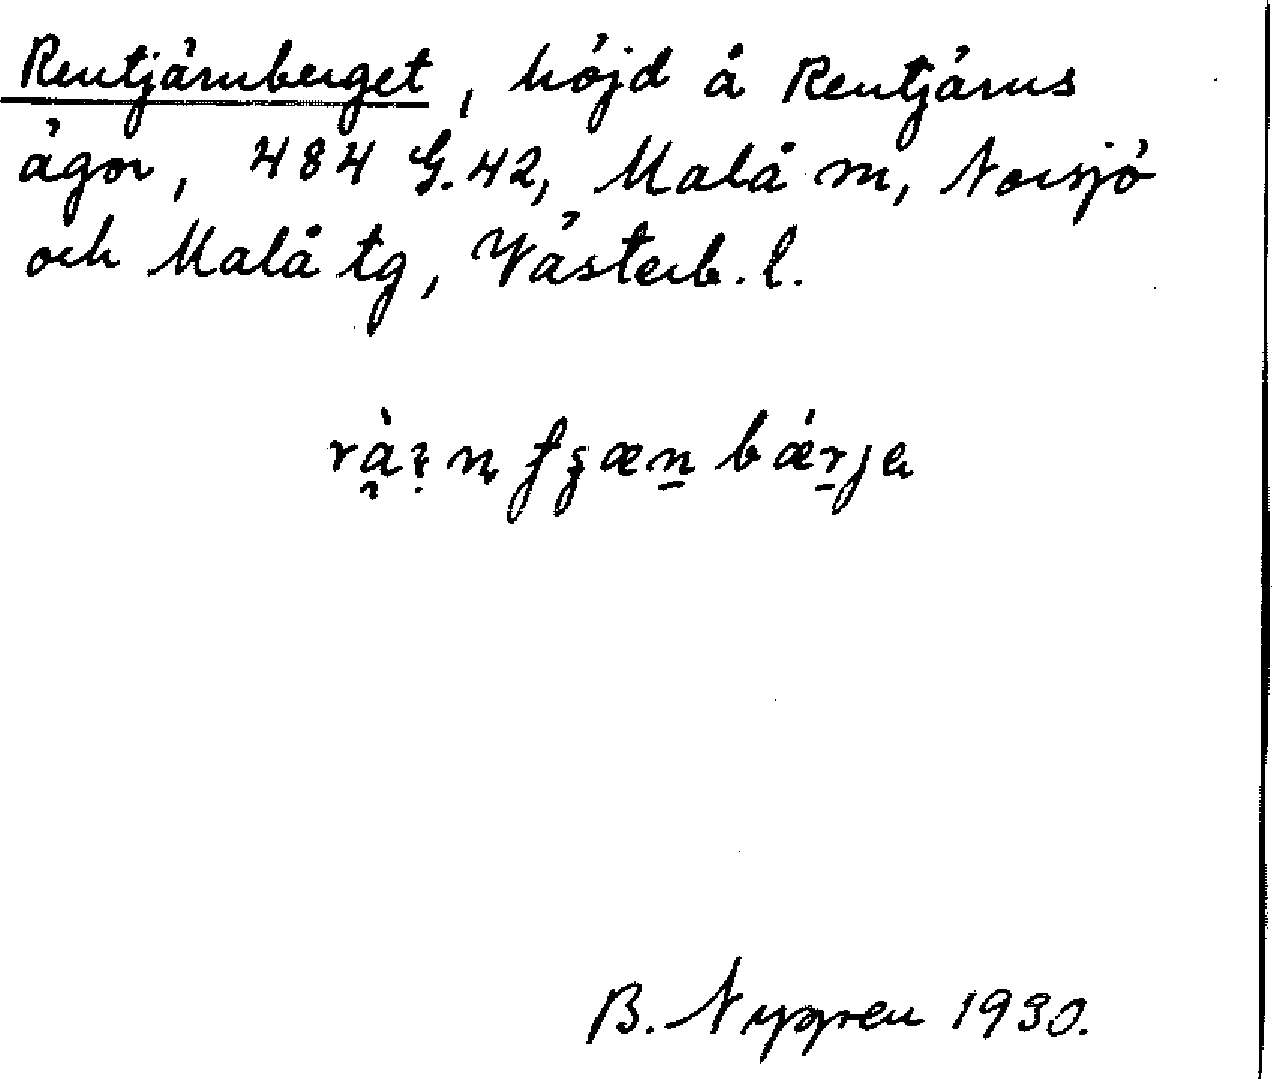 Rentjärnberget, höjd å Rentjärns
ägor, 484 G. 42, Malå m, Norsjö
och Malå tg, Västerb. l.
B. Nygren 1930.